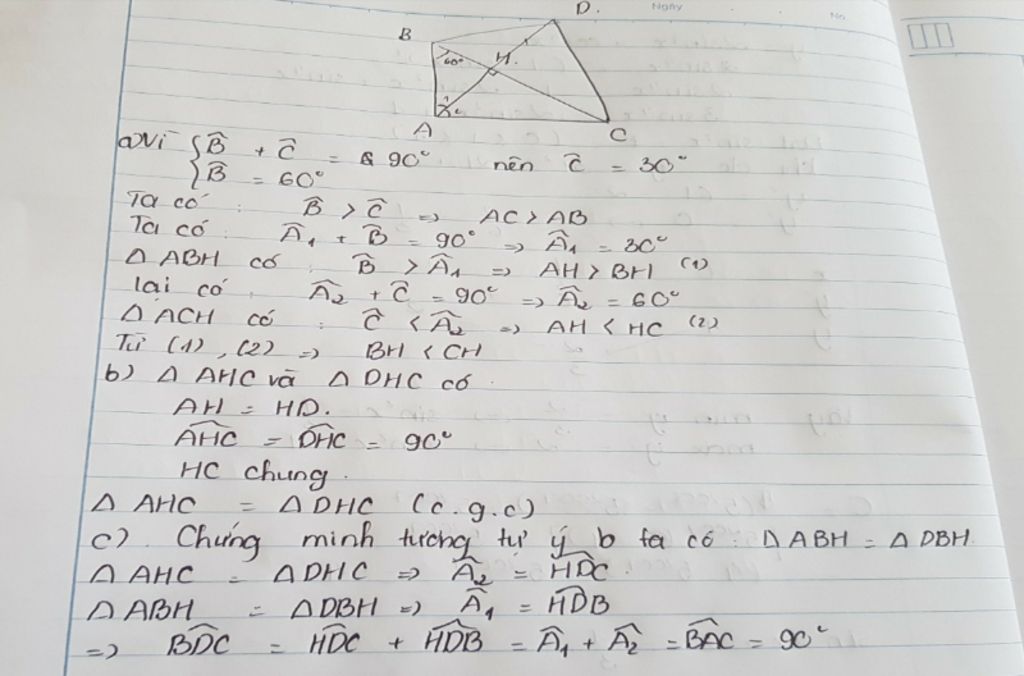 Ngày
No.
D.
B
60°
H.
1
2
A
C
a) Vì { B̂ + Ĉ = 90° nên Ĉ = 30°
B̂ = 60°
Ta có: B̂ > Ĉ => AC > AB
Ta có: Â₁ + B̂ = 90° => Â₁ = 30°
Δ ABH có: B̂ > Â₁ => AH > BH (1)
lại có Â₂ + Ĉ = 90° => Â₂ = 60°
Δ ACH có: Ĉ < Â₂ => AH < HC (2)
Từ (1), (2) => BH < CH
b) Δ AHC và Δ DHC có
AH = HD.
AHC = DHC = 90°
HC chung.
Δ AHC = Δ DHC (c.g.c)
c). Chứng minh tương tự ý b ta có: Δ ABH = Δ DBH
Δ AHC = Δ DHC => Â₂ = HDC.
Δ ABH = Δ DBH => Â₁ = HDB
=> BDC = HDC + HDB = Â₁ + Â₂ = BAC = 90°